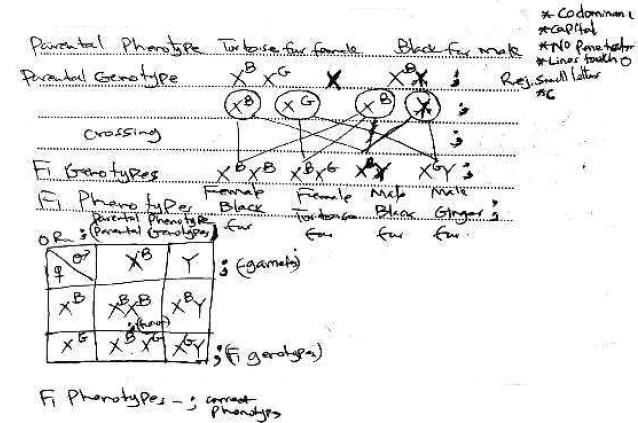 * Codominant
* Capital
* No penetrator
* Lines touch O
Rej. small letter
*C
Parental Phenotype Tortoise fur female Black fur male
Parental Genotype X^B X^G X X^B Y ;
X^B X^G X^B Y ;
Crossing ;
F1 Genotypes X^B X^B X^B X^G X^B Y X^G Y ;
F1 Phenotypes Female Female Male Male
Black Tortoise Black Ginger ;
fur fur fur fur.
OR ; (Parental Phenotype
Parental Genotypes)
♀ ♂ X^B Y ; (gametes)
X^B X^B X^B X^B Y
X^G X^B X^G X^G Y ; (F1 genotypes)
F1 Phenotypes - ; correct
Phenotypes